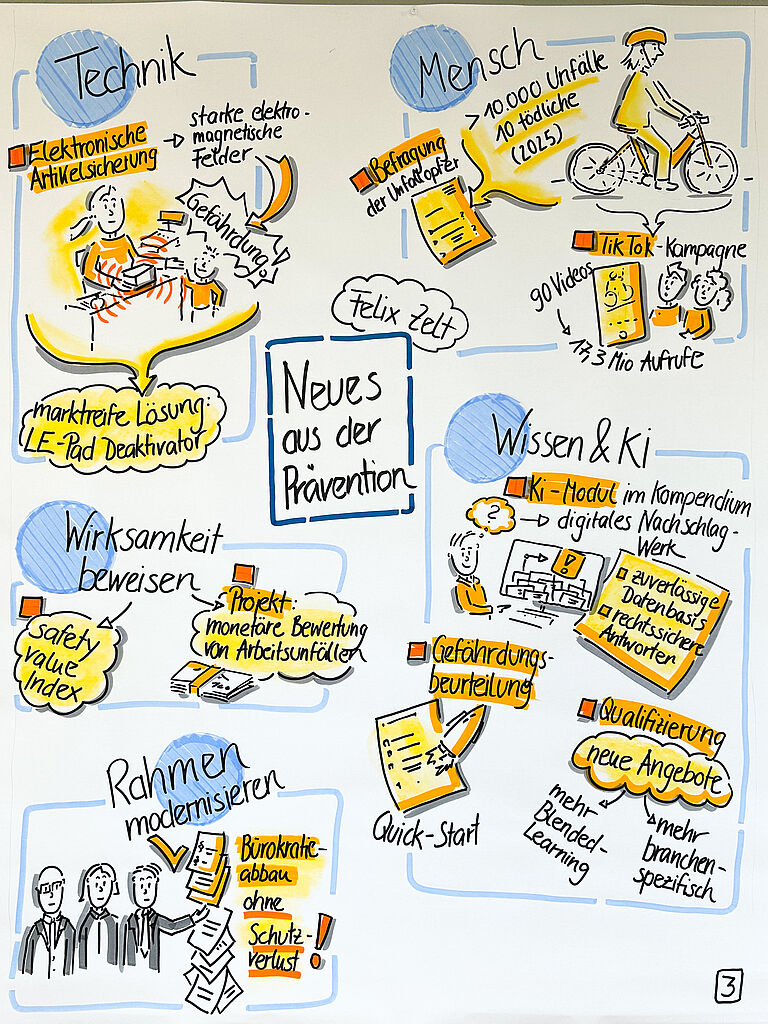 Technik
Elektronische
Artikelsicherung
→ starke elektro-
magnetische
Felder
Gefährdung!
marktreife Lösung:
LE-Pad Deaktivator
Mensch
> 10.000 Unfälle
10 tödliche
(2025)
Befragung
der Unfallopfer
TikTok-Kampagne
90 Videos
17,3 Mio Aufrufe
Felix Zelt
Neues
aus der
Prävention
Wissen & Ki
Ki-Modul im Kompendium
→ digitales Nachschlag-
Werk
?
!
zuverlässige
Datenbasis
rechtssichere
Antworten
Gefährdungs-
beurteilung
Quick-Start
Qualifizierung
neue Angebote
mehr
Blended-
Learning
mehr
branchen-
spezifisch
Wirksamkeit
beweisen
safety
value
Index
Projekt:
monetäre Bewertung
von Arbeitsunfällen
Rahmen
modernisieren
Bürokratie-
abbau
ohne
Schutz-
verlust!
3